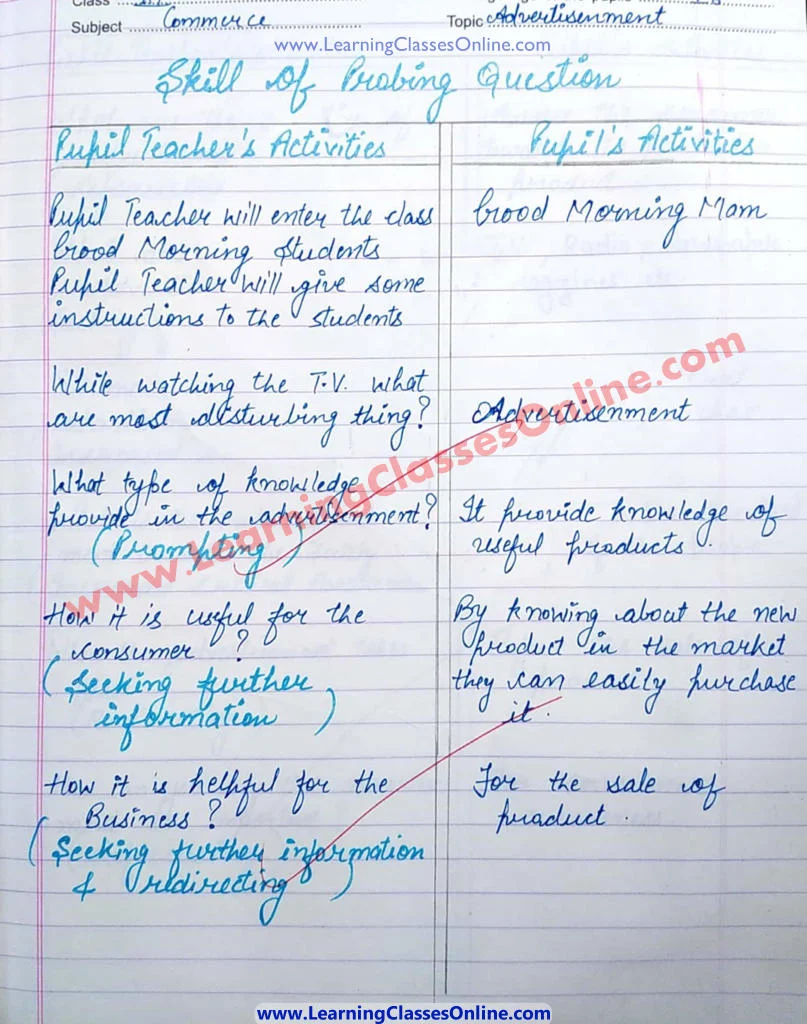 Class
Subject Commerce Topic Advertisenment
www.LearningClassesOnline.com
Skill of Probing Question
Pupil Teacher's Activities
Pupil's Activities
Pupil Teacher will enter the class
Good Morning Students
Pupil Teacher will give some
instructions to the students
Good Morning Mam
While watching the T.V. what
are most disturbing thing?
Advertisenment
What type of knowledge
provide in the advertisenment?
(Prompting)
It provide knowledge of
useful products.
How it is useful for the
consumer ?
(Seeking further
information)
By knowing about the new
product in the market
they can easily purchase
it.
How it is helpful for the
Business ?
(Seeking further information
& redirecting)
For the sale of
product.
www.LearningClassesOnline.com
www.LearningClassesOnline.com